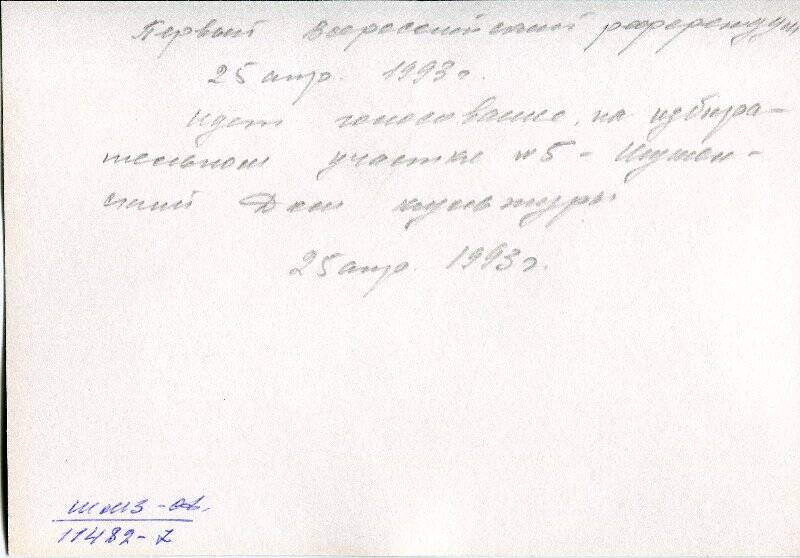 Первый Всероссийский референдум
25 апр. 1993 г.
Идет голосование на избира-
тельном участке №5 - Шушен-
ский Дом культуры
25 апр. 1993 г.
11482-7